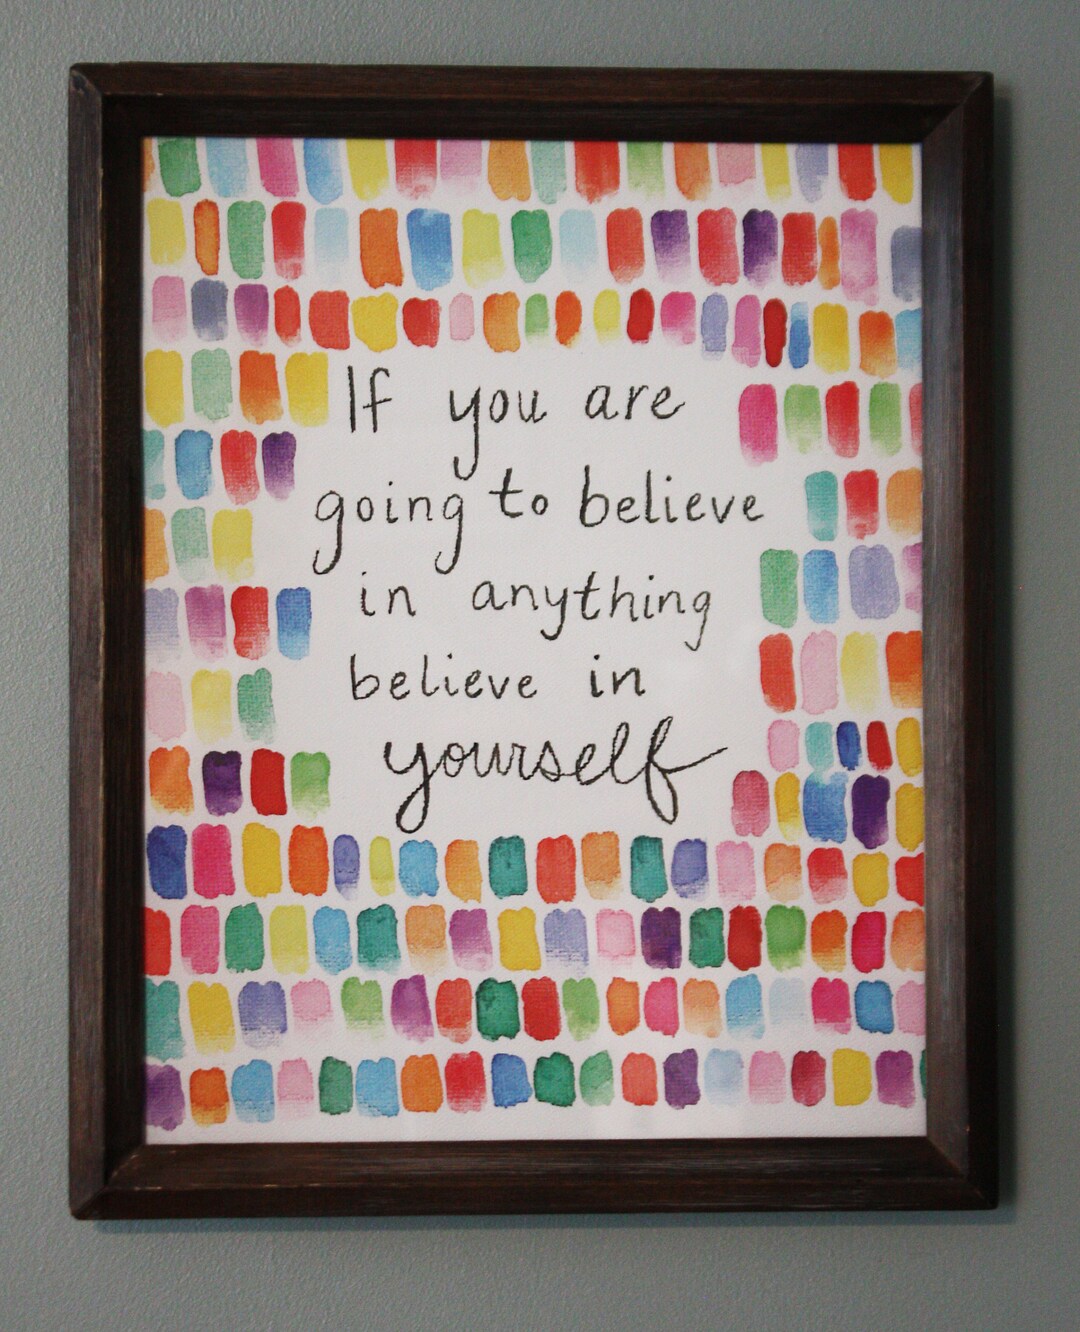 If you are
going to believe
in anything
believe in
yourself